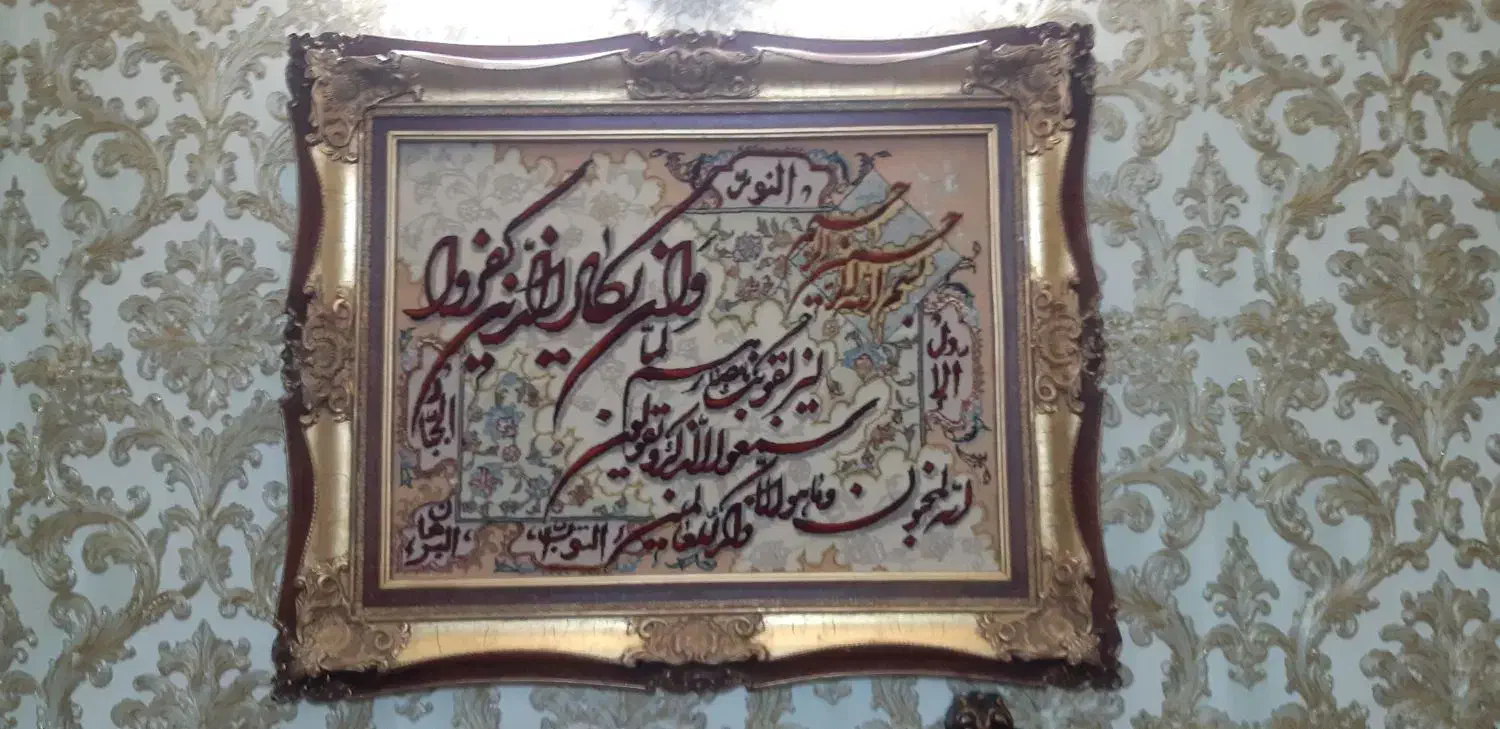 النور
بسم الله الرحمن الرحيم
وَان يكاد الذين كفروا
ليزلقونك بابصارهم لمّا
سمعوا الذكر و يقولون
انه لمجنون وما هو الا ذكر للعالمين
الاول
التواب
البرهان